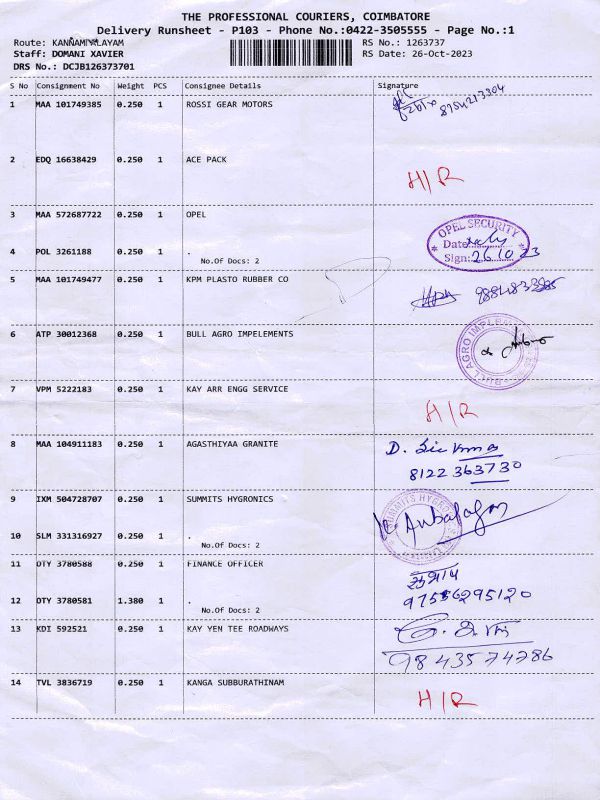 THE PROFESSIONAL COURIERS, COIMBATORE
Delivery Runsheet - P103 - Phone No.:0422-3505555 - Page No.:1
Route: KANNAMIYALAYAM
RS No.: 1263737
Staff: DOMANI XAVIER
RS Date: 26-Oct-2023
DRS No.: DCJB126373701
S No Consignment No Weight PCS Consignee Details Signature
1 MAA 101749385 0.250 1 ROSSI GEAR MOTORS
8754213304
2 EDQ 16638429 0.250 1 ACE PACK
H/R
3 MAA 572687722 0.250 1 OPEL
OPEL SECURITY
Date:
Sign: 26 10 23
4 POL 3261188 0.250 1 .
No.Of Docs: 2
5 MAA 101749477 0.250 1 KPM PLASTO RUBBER CO
6 ATP 30012368 0.250 1 BULL AGRO IMPELEMENTS
BULL AGRO IMPLEMENTS
7 VPM 5222183 0.250 1 KAY ARR ENGG SERVICE
H/R
8 MAA 104911183 0.250 1 AGASTHIYAA GRANITE
8122 363730
9 IXM 504728707 0.250 1 SUMMITS HYGRONICS
SUMMITS HYGRONICS
10 SLM 331316927 0.250 1 .
No.Of Docs: 2
11 OTY 3780588 0.250 1 FINANCE OFFICER
12 OTY 3780581 1.380 1 .
No.Of Docs: 2
13 KDI 592521 0.250 1 KAY YEN TEE ROADWAYS
9843574786
14 TVL 3836719 0.250 1 KANGA SUBBURATHINAM
H/R